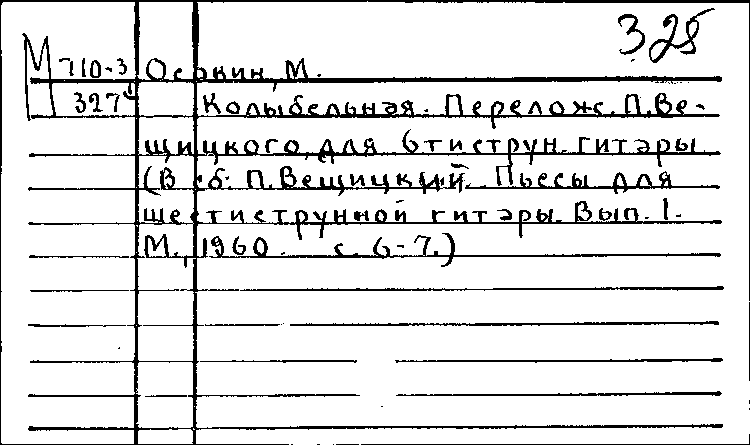 3.25
М 710-3 Осокин, М.
327 Колыбельная. Перелож. П.Ве-
щицкого для 6тиструн. гитары
(В сб: П.Вещицкий. Пьесы для
шестиструнной гитары. Вып. 1.
М., 1960. с. 6-7.)